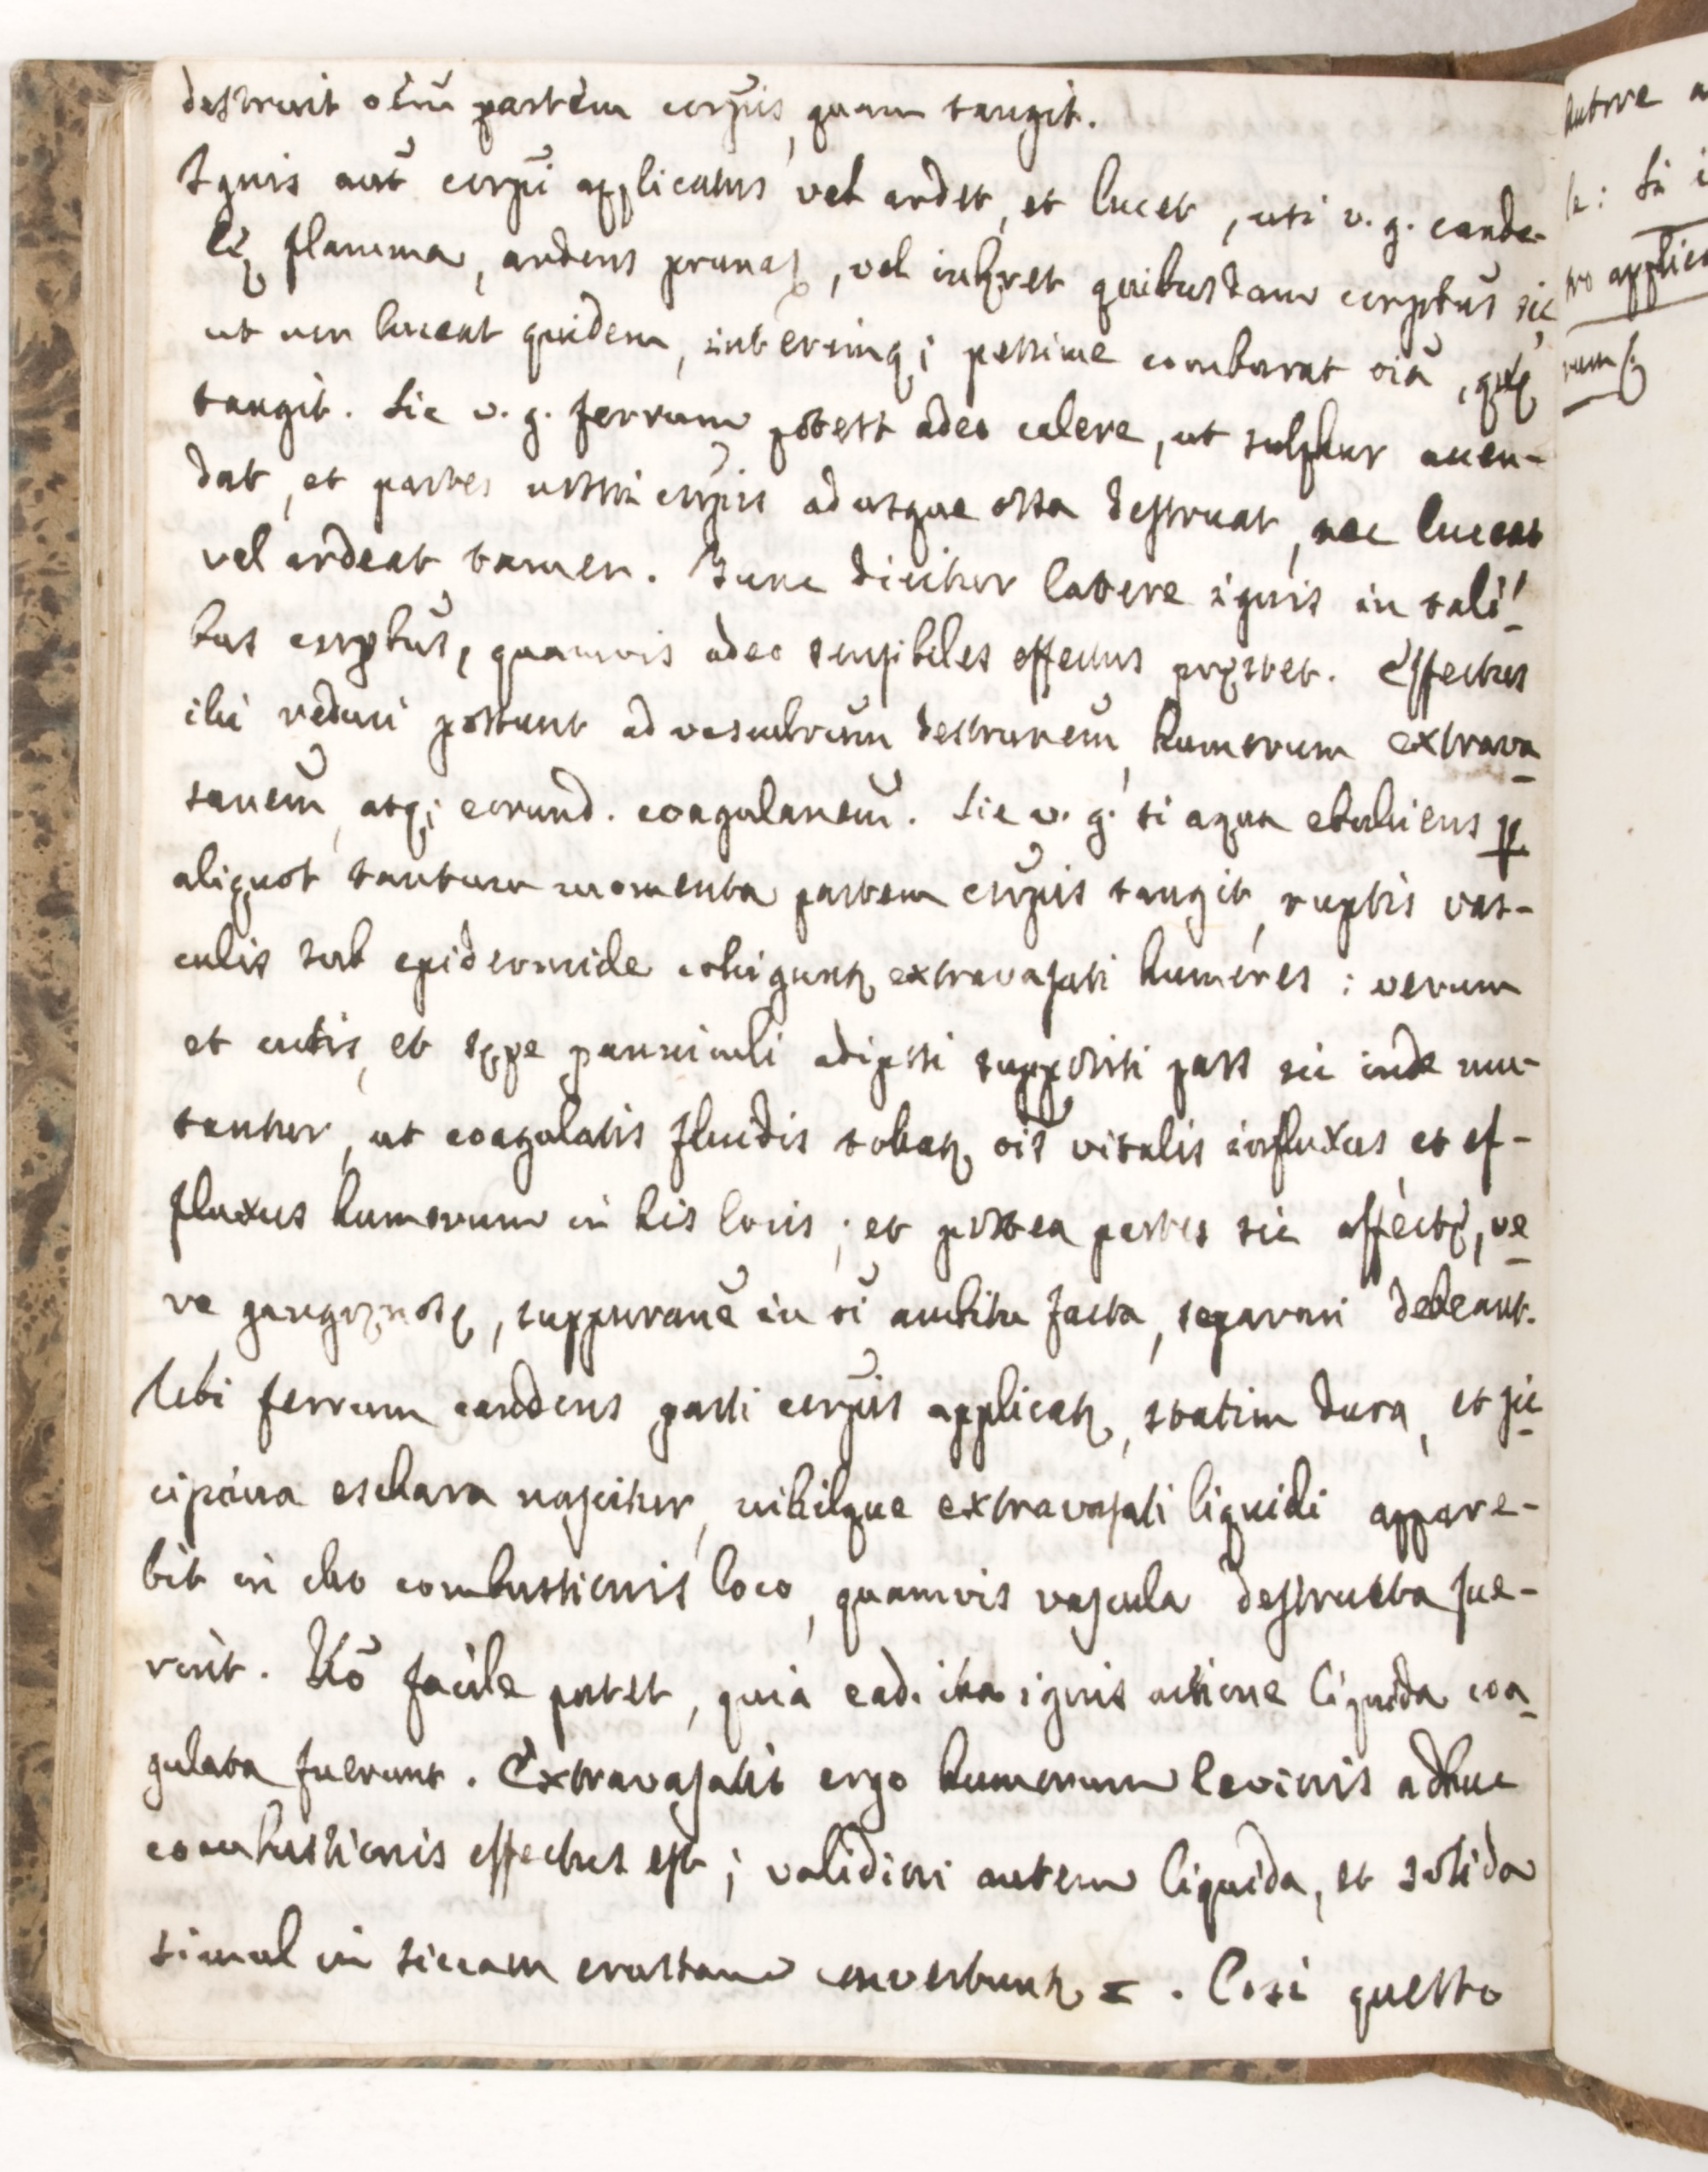 destruit oēm partem corpīs, quam tangit.
Ignis aūt corpī applicatus vel ardet, et lucet, uti v. g. cande-
lę flamma, ardens prunaq, vel inhęret quibusdam corpbūs sic,
ut non luceat quidem, interimq; pessime comburat oīa, quę
tangit. Sic v. g. ferrum potest adeo calere, ut sulphur accen-
dat, et partes nostri corpīs ad usque ossa destruat, nec luceat
vel ardeat tamen. Tunc dicitur latere ignis in tali-
bus corpbūs, quamvis adeo sensibiles effectus pręstet. Effectus
illi reduci possunt ad vasculorūm destrunem̄, humorum extrava
sanem̄, atq; eorund. coagulanem̄. Sic v. g. si aqua ebuliens ꝑ
aliquot tantum momenta partem corpīs tangit, ruptis vas-
culis sub epidermide colligunt̃ extravasati humores; verum
et cutis, et sępe panniculi adiposi suppositi pars sic inde mu-
tantur, ut coagulatis fluidis tollat̃ oīs vitalis influxus et ef-
fluxus humorum in his locis; et postea partes sic affectę, ve
re gangręnosę, suppuranē in oī ambitu facta, separari debeant.
Ubi ferrum candens parti corpīs applicat̃, statim dura, et sic
cissima eschara nascitur, nihilque extravasati liquidi appare-
bit in illo combustionis loco, quamvis vascula destructa fue-
rint. Rō facile patet, quia ead. illa ignis actione liquida coa
gulata fuerunt. Extravasatio ergo humorum levioris adhuc
combustionis effectus est; validiori autem liquida, et solida
simul in siccam crustam convertunt̃ =. Così questo